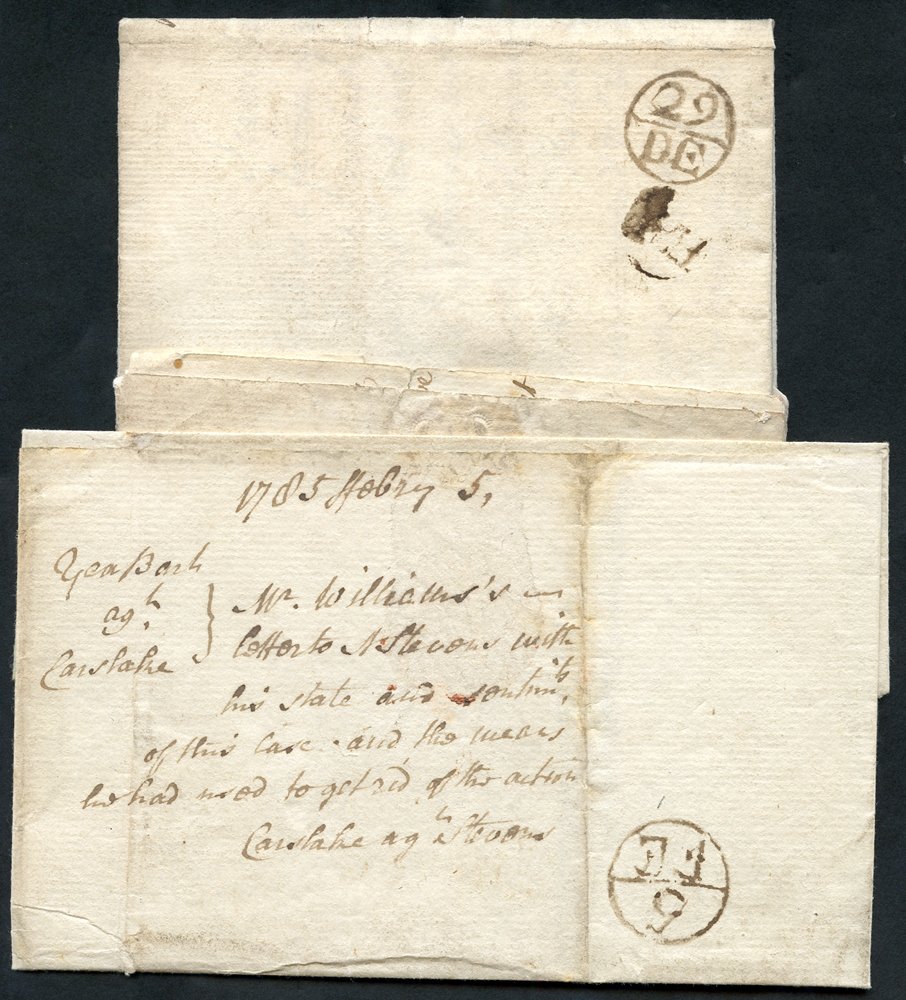 29
DE
1785 ffebry 5,
Yea Bart
agt
Carslake
Mr. Williams's
letter to J Stevens with
his state and sentimts,
of this Case and the means
he had used to get rid of the action
Carslake agt Stevens
FE
5